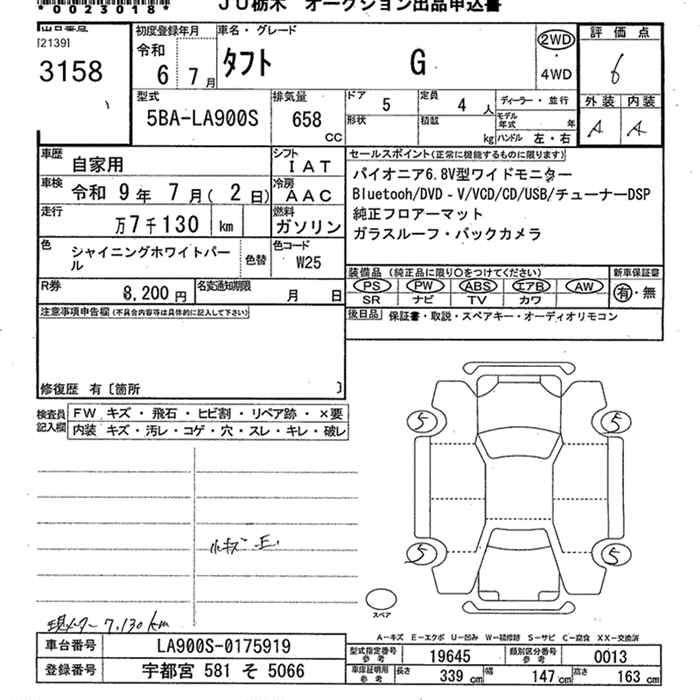 *00023018*
JU栃木 オークション出品申込書
[2139]
3158
初度登録年月
令和 6 7月
車名・グレード
タフト G
2WD
・
4WD
評価点
6
外装 内装
A A
型式
5BA-LA900S
排気量
658 CC
ドア 5
定員 4 人
ディーラー・並行
形状
積載 kg
モデル年式 年
ハンドル 左・右
車歴 自家用
シフト IAT
車検 令和 9年 7月( 2日)
冷房 AAC
走行 万7千130 km
燃料 ガソリン
色 シャイニングホワイトパール
色替
色コード W25
R券 8,200円
名変通知期限 月 日
セールスポイント(正常に機能するものに限ります)
パイオニア6.8V型ワイドモニター
Bluetooh/DVD-V/VCD/CD/USB/チューナーDSP
純正フロアーマット
ガラスルーフ・バックカメラ
装備品 (純正品に限り○をつけてください)
新車保証書
PS PW ABS エアB AW
SR ナビ TV カワ
有・無
後日品 保証書・取説・スペアキー・オーディオリモコン
注意事項申告欄(不具合内容等は具体的に記入して下さい)
修復歴 有〔箇所 〕
検査員記入欄
FW キズ・飛石・ヒビ割・リペア跡・×要
内装 キズ・汚レ・コゲ・穴・スレ・キレ・破レ
5 5
小キズ E
5 5
スペア
現メーター 7,130km
A-キズ E-エクボ U-凹み W-補修跡 S-サビ C-腐食 XX-交換済
車台番号 LA900S-0175919
登録番号 宇都宮 581 そ 5066
型式指定番号 参考 19645
類別区分番号 参考 0013
車庫証明用 参考 長さ 339 cm 幅 147 cm 高さ 163 cm